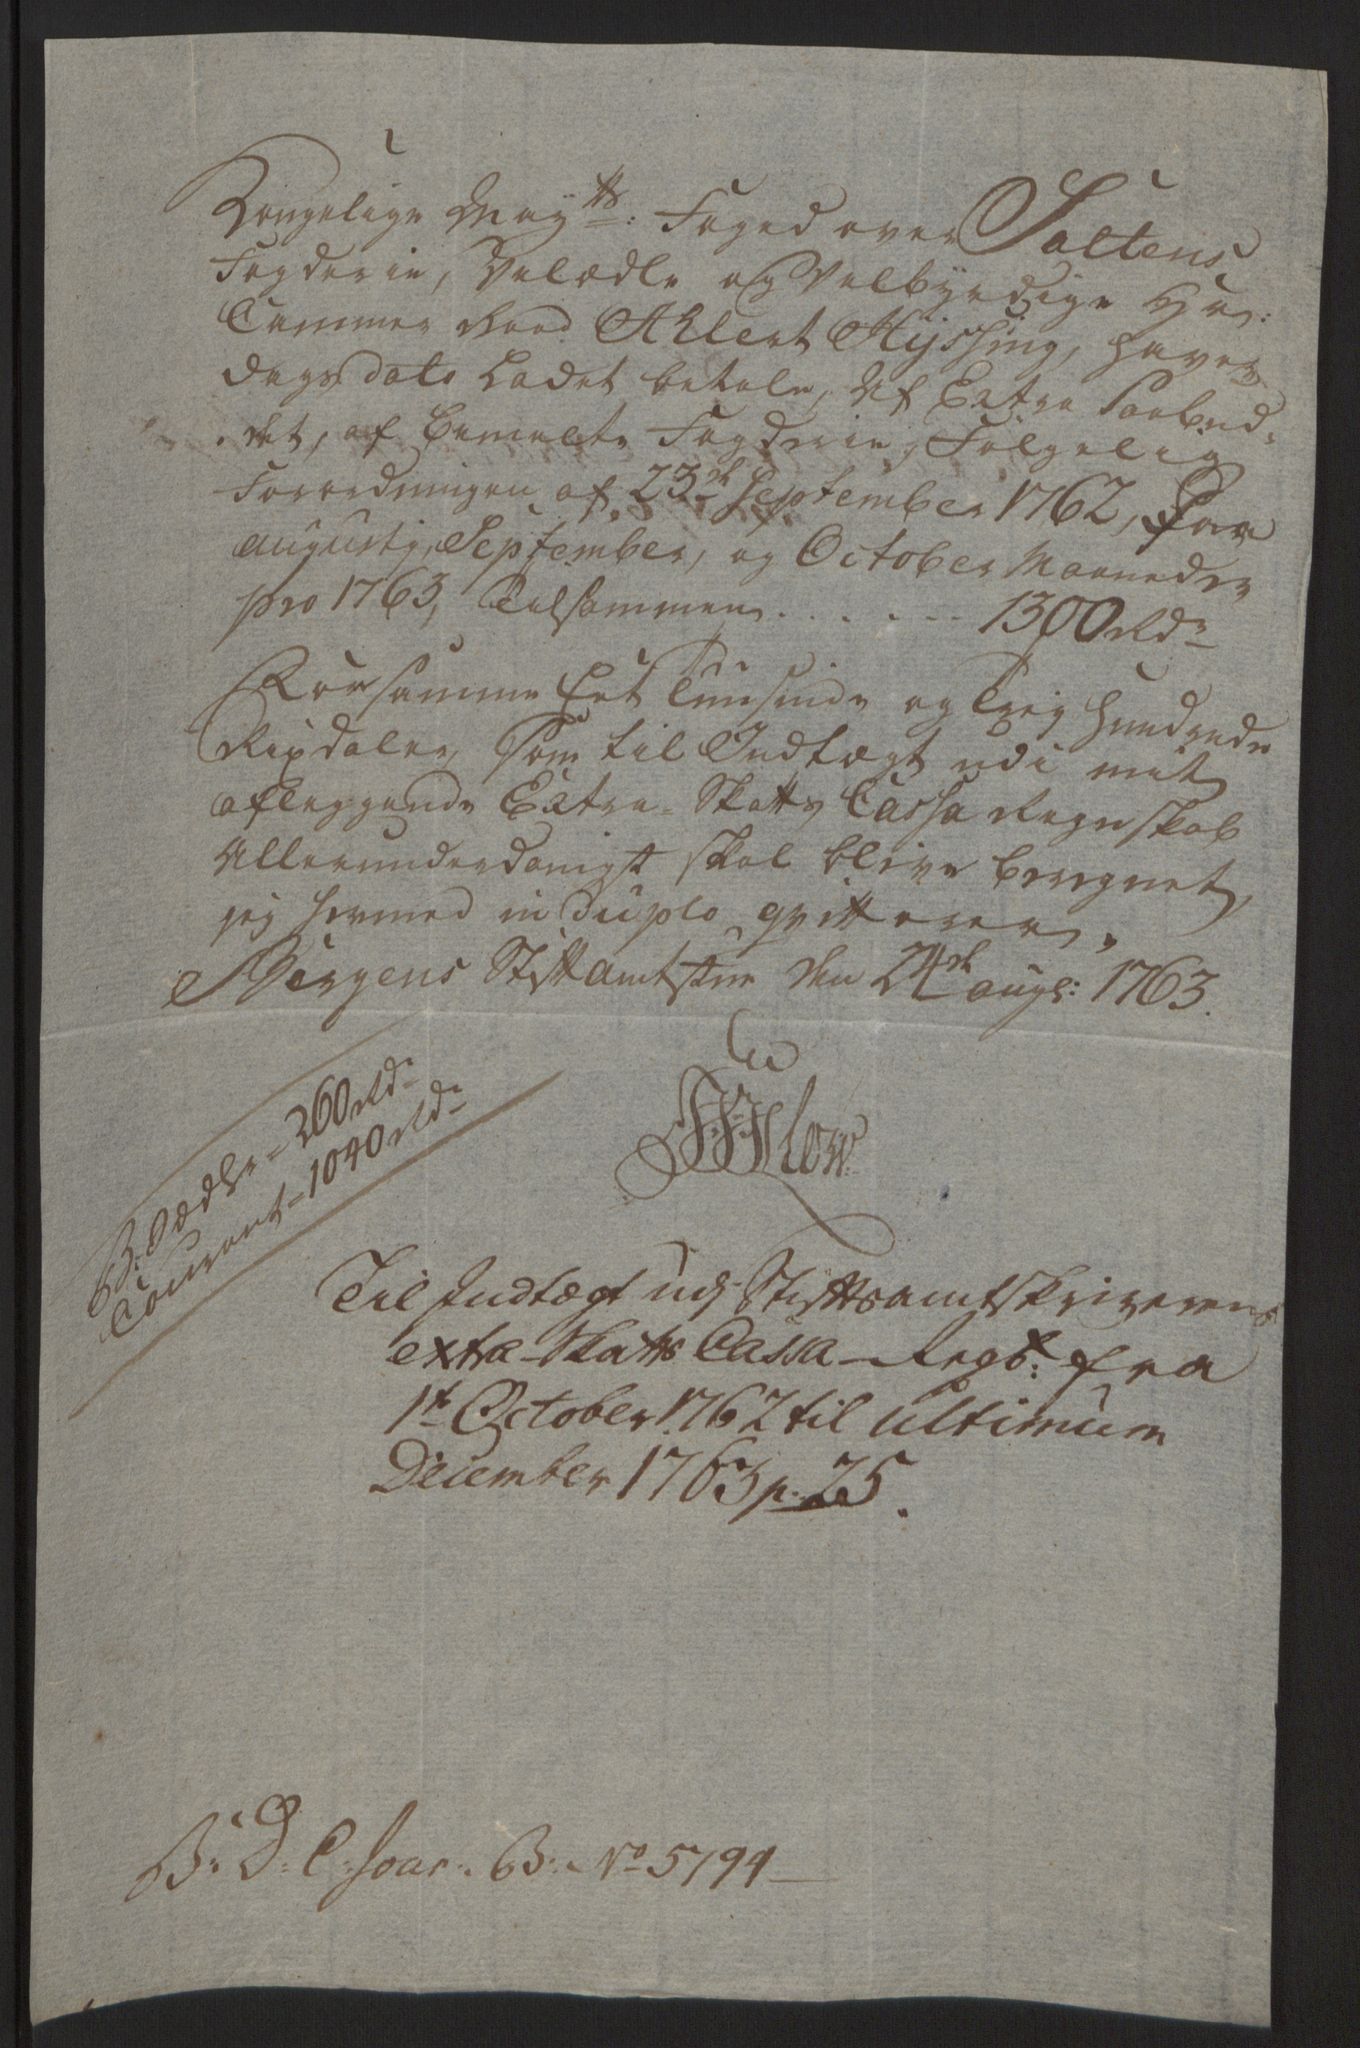 Kongelige May<sup>ts</sup>: Foged over Saltens
Fogderie, Velædle og Velbyrdige Hr:
Cammer Raad Ahlert Hÿssing, haver
dags dato Ladet betale, Af Extra Paabud-
det, af bemelte Fogderie, Følgelig
Forordningen af 23de September 1762, for
augustj, September, og October Maaneder
pro 1763, Tilsammen . . . . . . 1300 Rdr
For samme Eet Tusinde og Trej hundrede
Rixdaler, som til Indtægt udi mit
aflæggende Extra-Skatts Cassa Regnskab
Allerunderdanigst skal blive beregnet,
jeg hermed in duplo qvitterer.
Bergens Stiftamtstue den 24de aug: 1763.
Banco Sedler = 260 Rdr
Courant = 1040 Rdr
Til Indtægt udj Stiftsamtskriverens
extra Skatts Cassa-Regsk: fra
1te October 1762 til ultimum
December 1763 p: 25.
B: D: C: Jour: B: No 5794